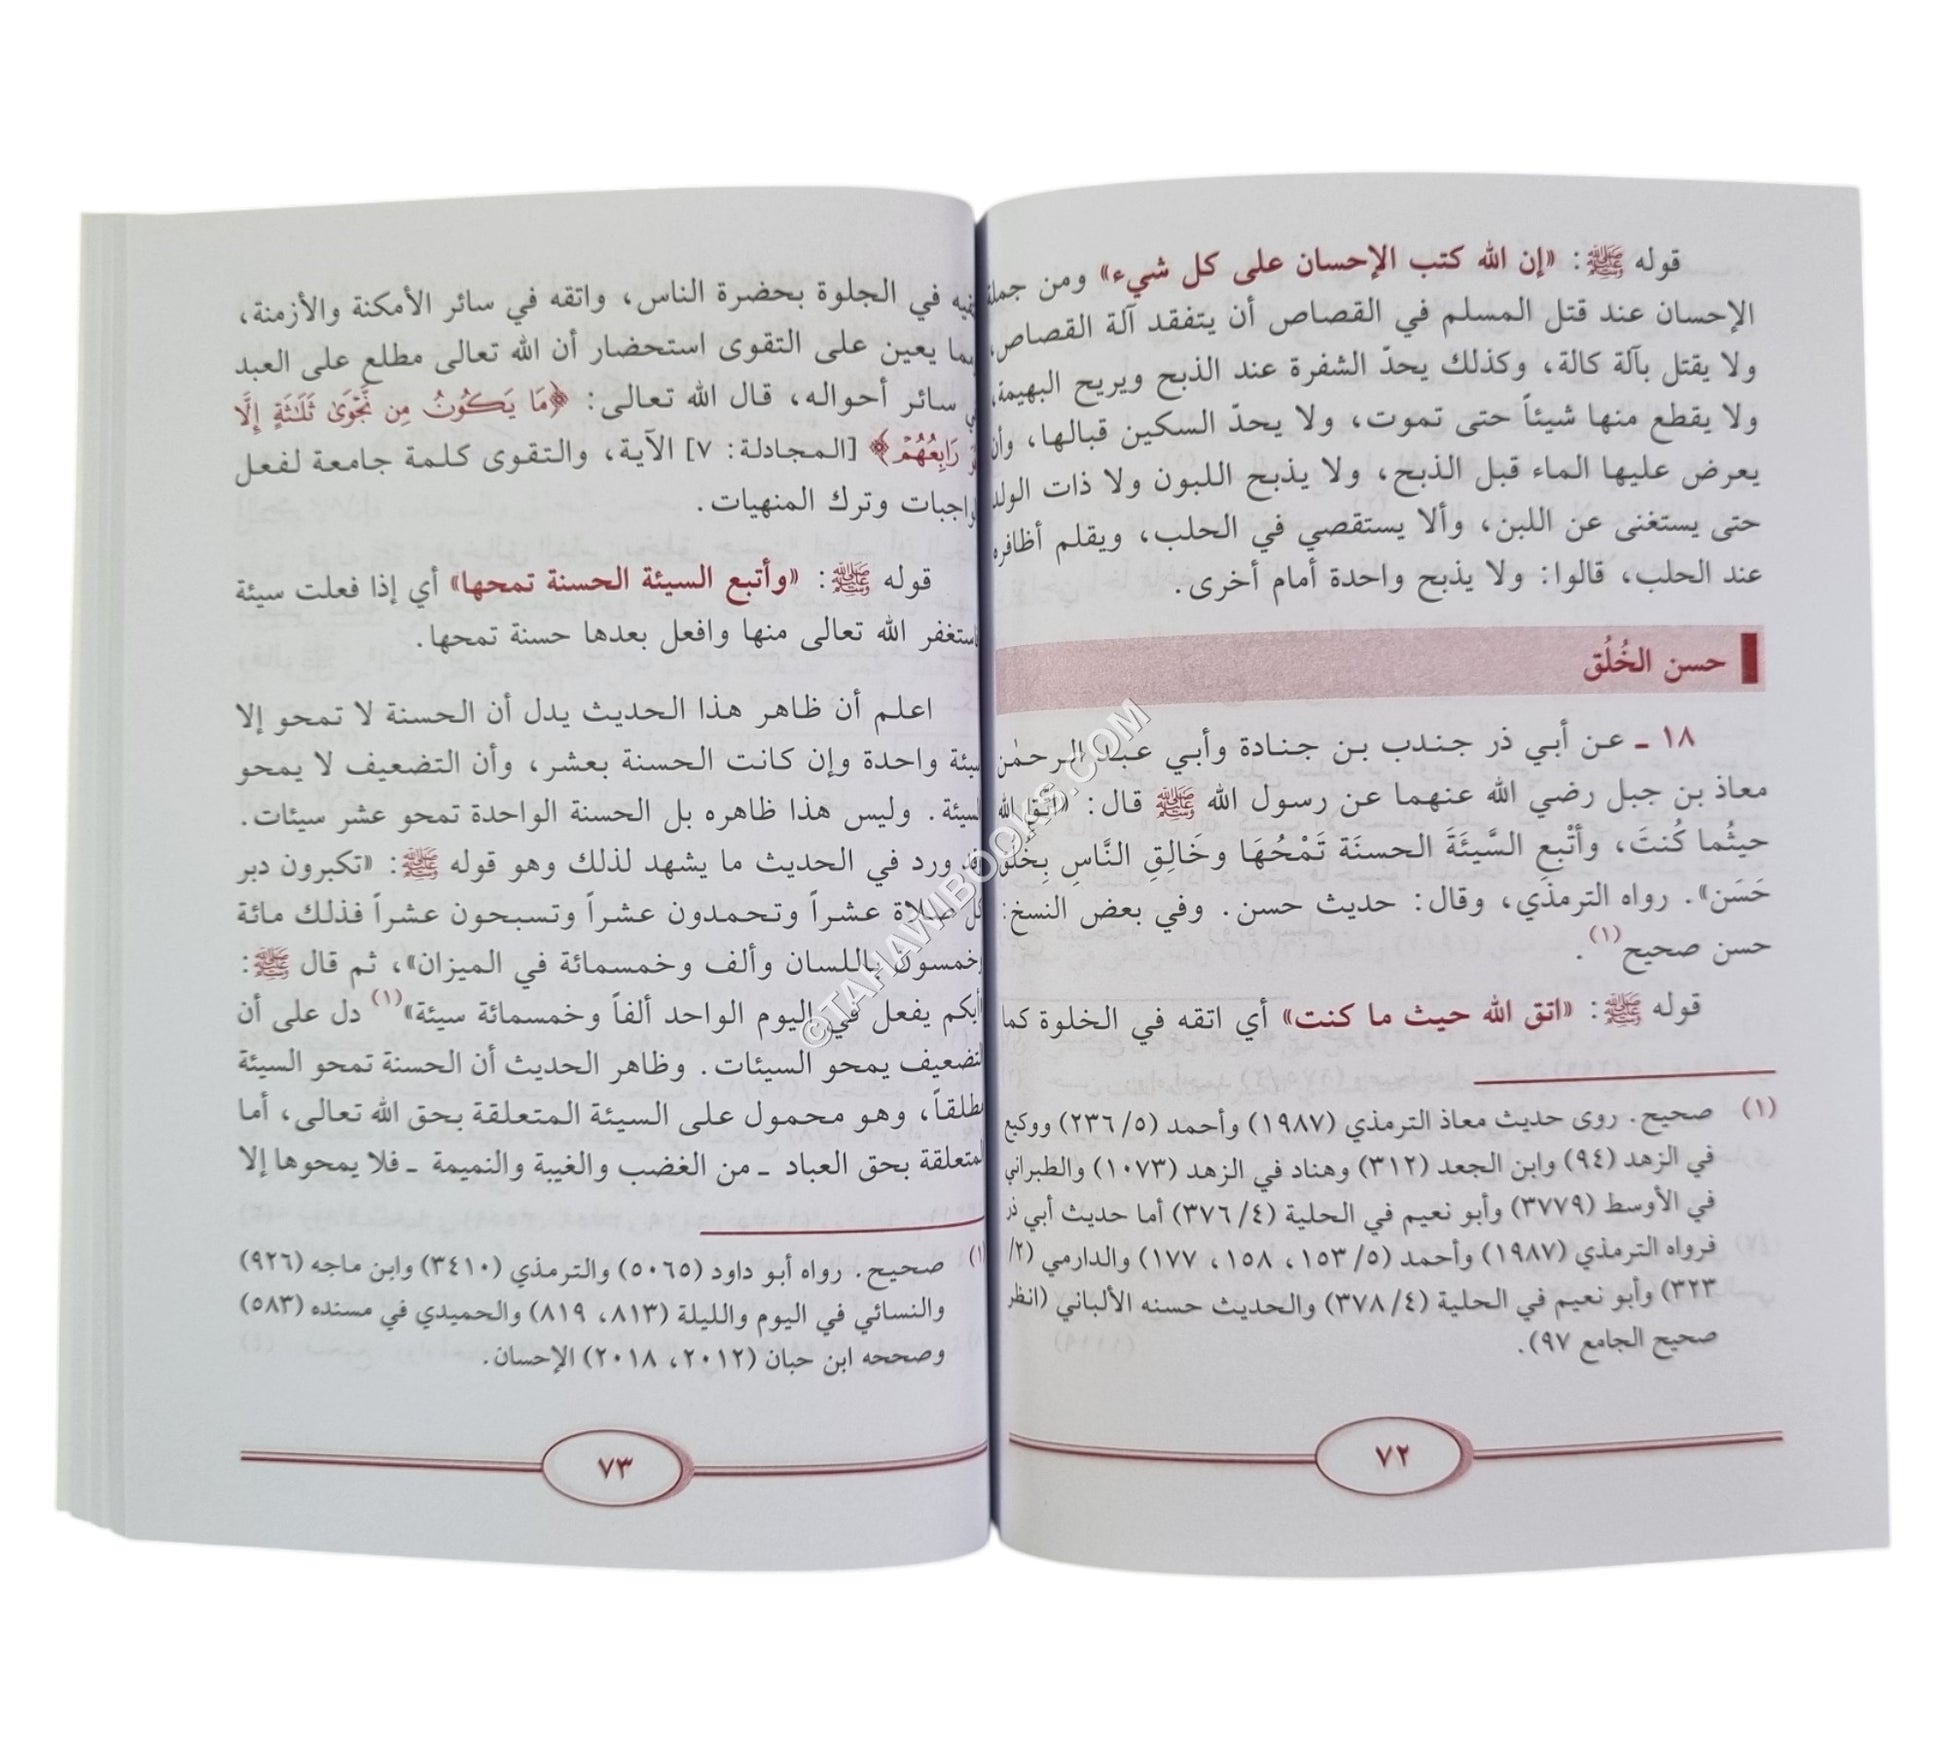 قوله ﷺ: «إن الله كتب الإحسان على كل شيء» ومن جملة
الإحسان عند قتل المسلم في القصاص أن يتفقد آلة القصاص،
ولا يقتل بآلة كالة، وكذلك يحدّ الشفرة عند الذبح ويريح البهيمة،
ولا يقطع منها شيئاً حتى تموت، ولا يحدّ السكين قبالها، وأن
يعرض عليها الماء قبل الذبح، ولا يذبح اللبون ولا ذات الولد
حتى يستغنى عن اللبن، وألا يستقصي في الحلب، ويقلم أظافره
عند الحلب، قالوا: ولا يذبح واحدة أمام أخرى.
حسن الخُلُق
١٨ ـ عن أبي ذر جندب بن جنادة وأبي عبد الرحمٰن
معاذ بن جبل رضي الله عنهما عن رسول الله ﷺ قال: «اتق الله
حيثُما كُنتَ، وأتْبِعِ السَّيئَةَ الحسنَة تَمْحُهَا وخَالِقِ النَّاسِ بِخُلُق
حَسَن». رواه الترمذي، وقال: حديث حسن. وفي بعض النسخ:
حسن صحيح(١).
قوله ﷺ: «اتق الله حيث ما كنت» أي اتقه في الخلوة كما
(١) صحيح. روى حديث معاذ الترمذي (١٩٨٧) وأحمد (٥/ ٢٣٦) ووكيع
في الزهد (٩٤) وابن الجعد (٣١٢) وهناد في الزهد (١٠٧٣) والطبراني
في الأوسط (٣٧٧٩) وأبو نعيم في الحلية (٤/ ٣٧٦) أما حديث أبي ذر
فرواه الترمذي (١٩٨٧) وأحمد (٥/ ١٥٣، ١٥٨، ١٧٧) والدارمي (٢/
٣٢٣) وأبو نعيم في الحلية (٤/ ٣٧٨) والحديث حسنه الألباني (انظر
صحيح الجامع ٩٧).
٧٢
في الجلوة بحضرة الناس، واتقه في سائر الأمكنة والأزمنة،
يعين على التقوى استحضار أن الله تعالى مطلع على العبد
سائر أحواله، قال الله تعالى: ﴿مَا يَكُونُ مِن نَّجْوَىٰ ثَلَـٰثَةٍ إِلَّا
رَابِعُهُمْ﴾ [المجادلة: ٧] الآية، والتقوى كلمة جامعة لفعل
الواجبات وترك المنهيات.
قوله ﷺ: «وأتبع السيئة الحسنة تمحها» أي إذا فعلت سيئة
فاستغفر الله تعالى منها وافعل بعدها حسنة تمحها.
اعلم أن ظاهر هذا الحديث يدل أن الحسنة لا تمحو إلا
سيئة واحدة وإن كانت الحسنة بعشر، وأن التضعيف لا يمحو
السيئة. وليس هذا ظاهره بل الحسنة الواحدة تمحو عشر سيئات.
قد ورد في الحديث ما يشهد لذلك وهو قوله ﷺ: «تكبرون دبر
كل صلاة عشراً وتحمدون عشراً وتسبحون عشراً فذلك مائة
وخمسون باللسان وألف وخمسمائة في الميزان»، ثم قال ﷺ:
أيكم يفعل في اليوم الواحد ألفاً وخمسمائة سيئة»(١) دل على أن
التضعيف يمحو السيئات. وظاهر الحديث أن الحسنة تمحو السيئة
مطلقاً، وهو محمول على السيئة المتعلقة بحق الله تعالى، أما
المتعلقة بحق العباد ـ من الغضب والغيبة والنميمة ـ فلا يمحوها إلا
(١) صحيح. رواه أبو داود (٥٠٦٥) والترمذي (٣٤١٠) وابن ماجه (٩٢٦)
والنسائي في اليوم والليلة (٨١٣، ٨١٩) والحميدي في مسنده (٥٨٣)
وصححه ابن حبان (٢٠١٢، ٢٠١٨) الإحسان.
٧٣
©TAHAWIBOOKS.COM